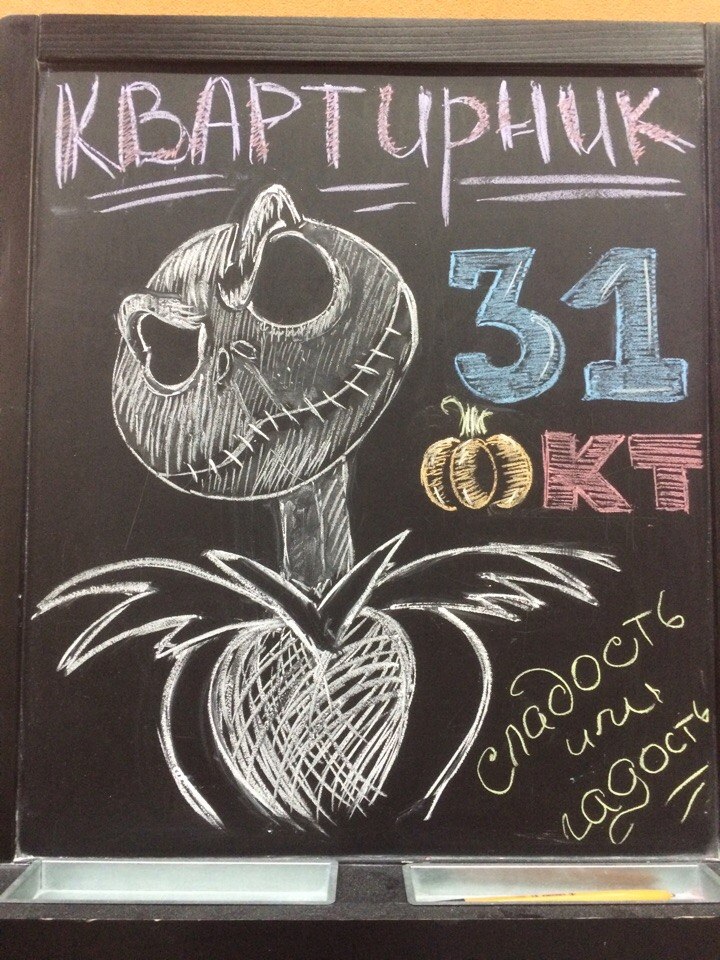 КВАРТИРНИК
31
ОКТ
сладость
или
гадость